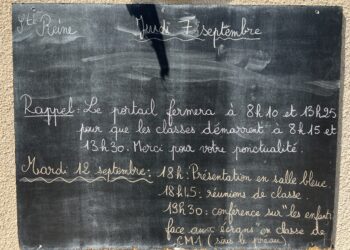 Ste Reine
Jeudi 7 septembre
Rappel: Le portail fermera à 8h10 et 13h25
pour que les classes démarrent à 8h15 et
13h30. Merci pour votre ponctualité.
Mardi 12 septembre: 18h: Présentation en salle bleue.
18h15: réunions de classe.
19h30: conférence sur "les enfants
face aux écrans en classe de
CM1 (sous le préau)